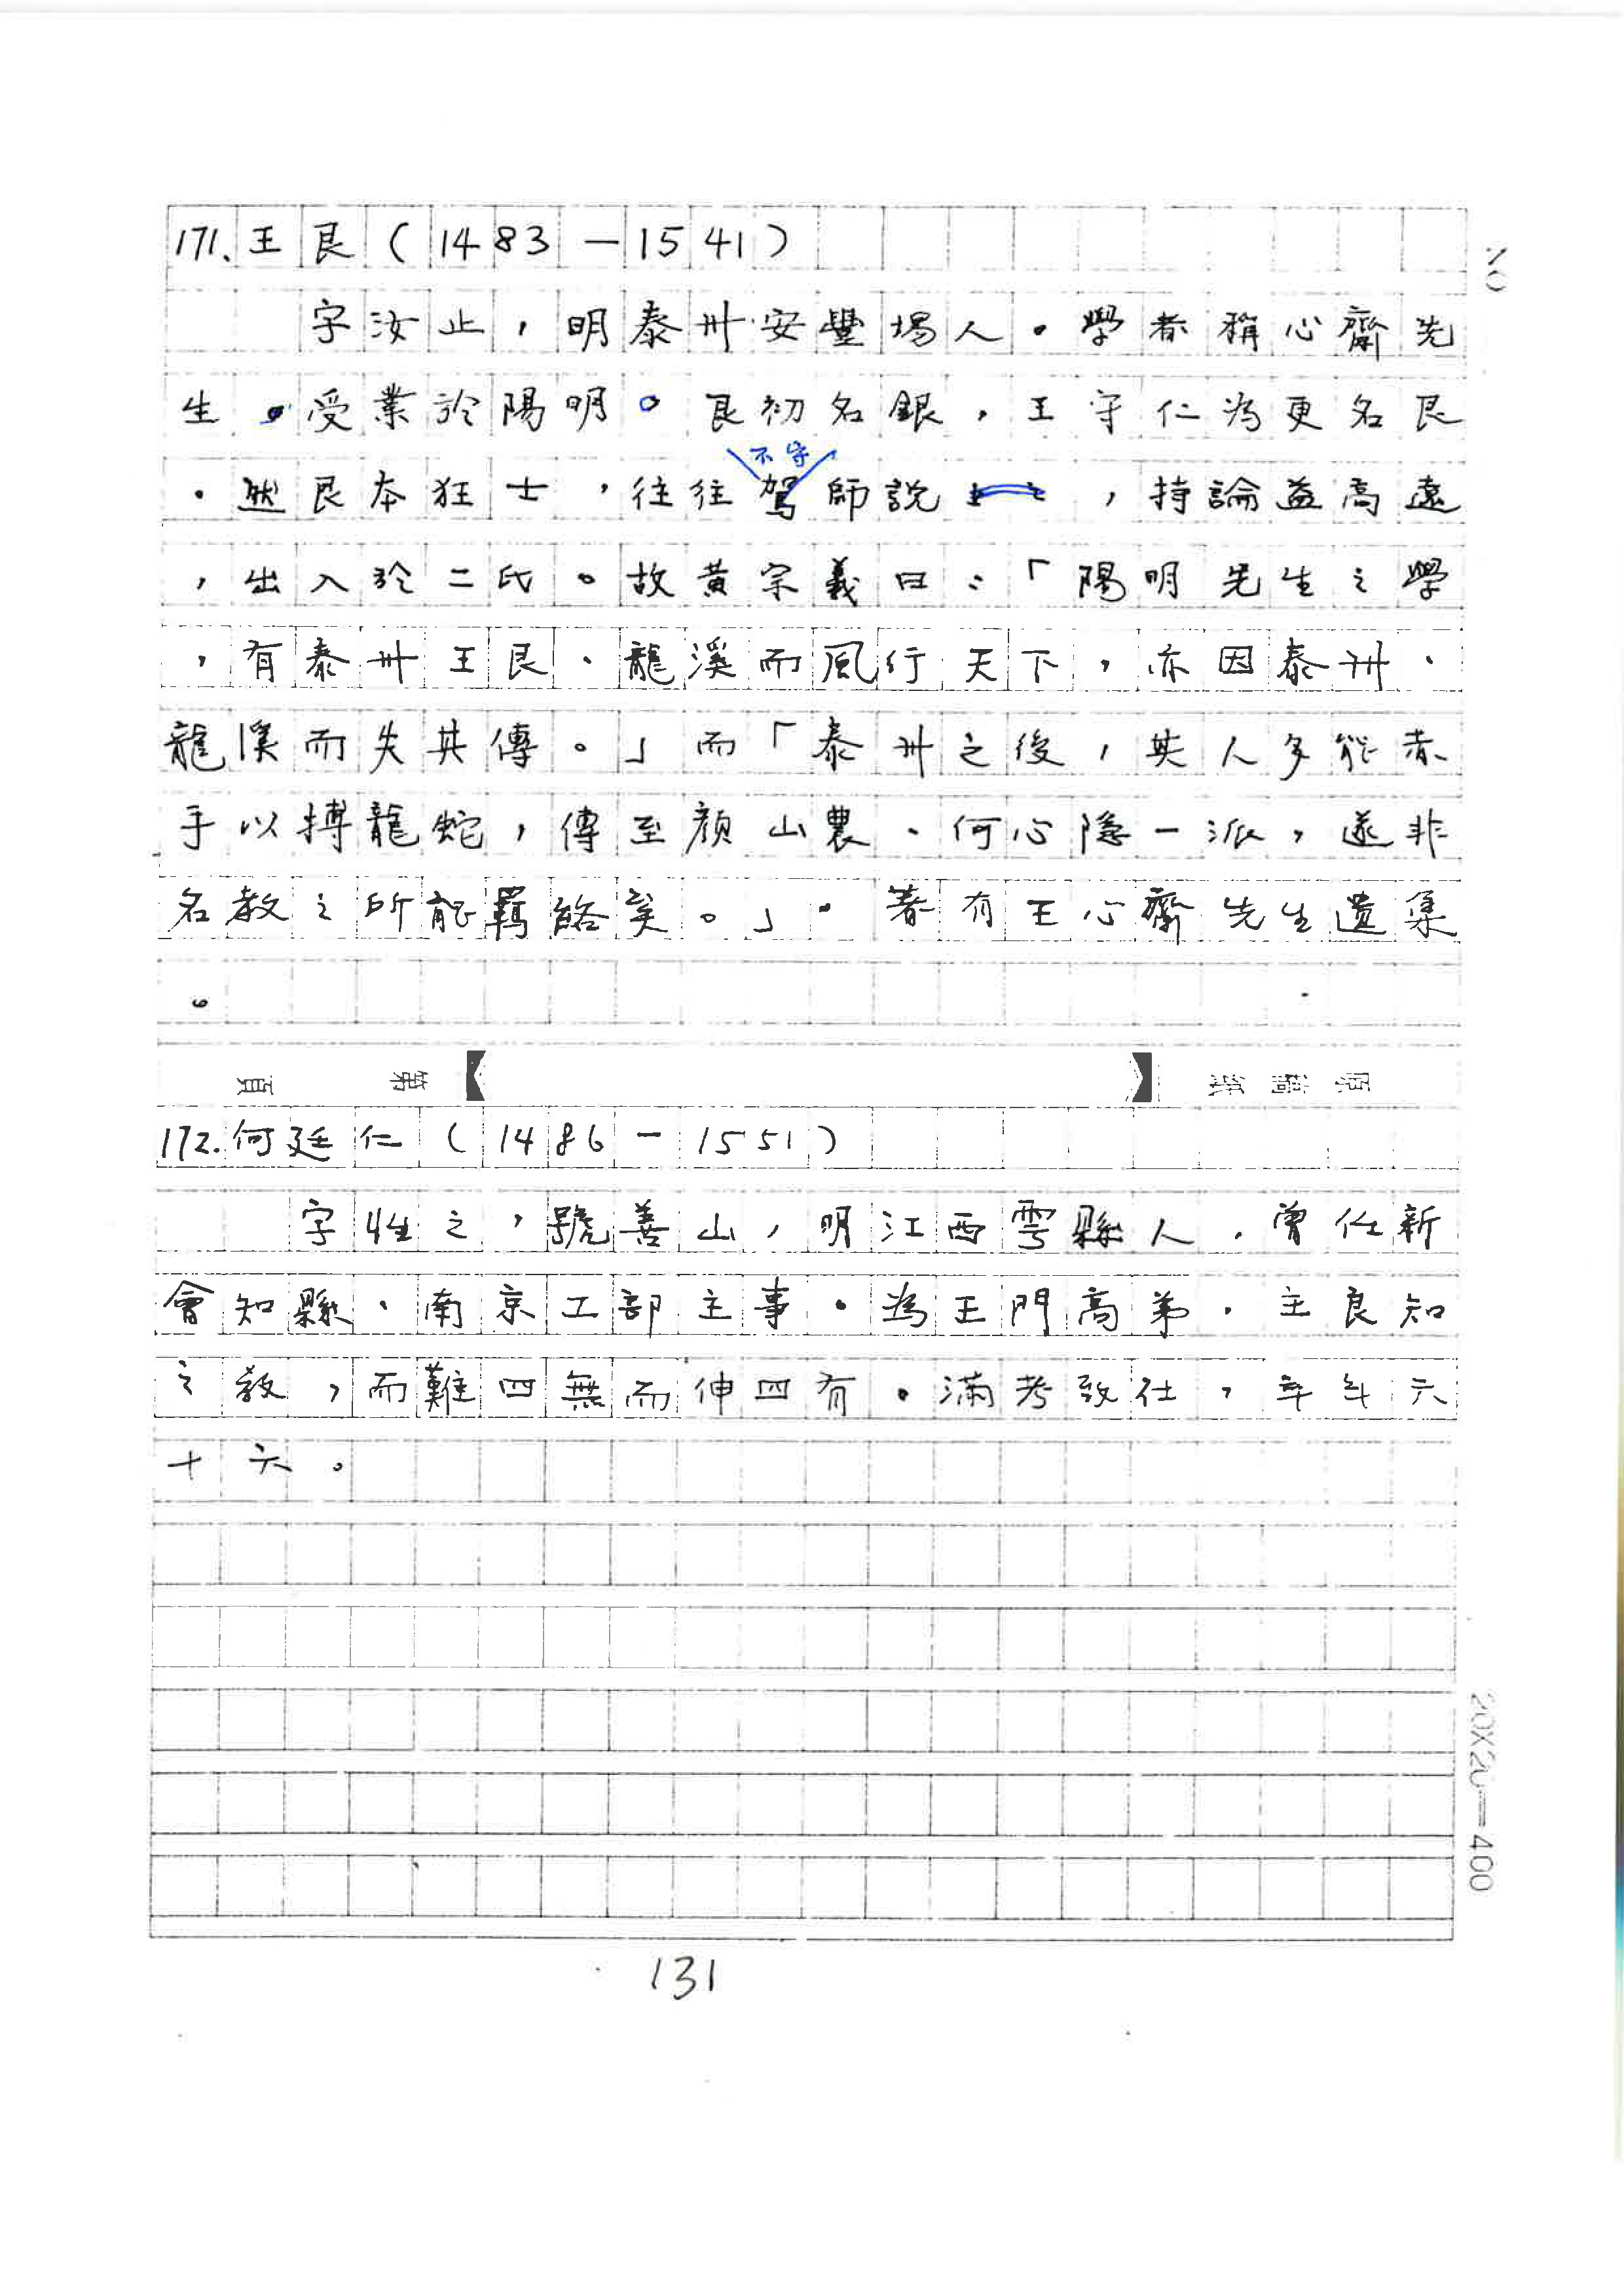 171.王艮(1483－1541)
NO
字汝止，明泰州安豐場人。學者稱心齋先
生。受業於陽明。艮初名銀，王守仁為更名艮
不守
。然艮本狂士，往往駕師說上之，持論益高遠
，出入於二氏。故黃宗羲曰：「陽明先生之學
，有泰州王艮、龍溪而風行天下，亦因泰州、
龍溪而失其傳。」而「泰州之後，其人多能赤
手以搏龍蛇，傳至顏山農、何心隱一派，遂非
名教之所能羈絡矣。」。著有王心齋先生遺集
。
頁 第 原稿紙
172.何廷仁(1486－1551)
字性之，號善山，明江西雩縣人。曾任新
會知縣、南京工部主事。為王門高弟。主良知
之教，而難四無而伸四有。滿考致仕，年六
十六。
20X20=400
131